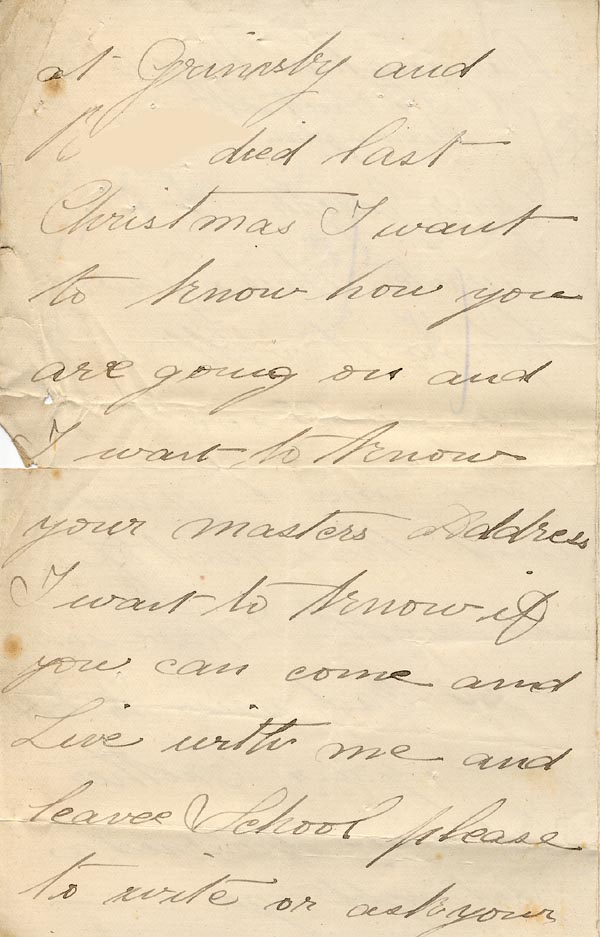 at Grimsby and
died last
Christmas I want
to know how you
are going on and
I want to know
your masters Address
I want to know if
you can come and
Live with me and
leavee School please
to write or ask your